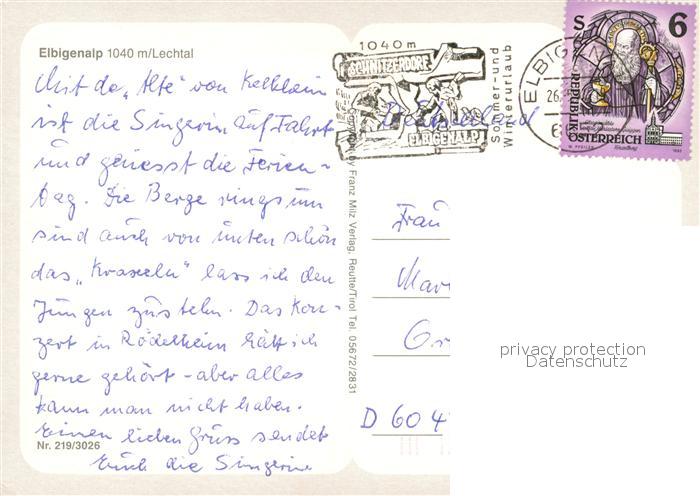 Elbigenalp 1040 m/Lechtal
Mit de „Alte" von Kelkheim
ist die Singerin auf Fahrt
und geniesst die Ferien-
tag. Die Berge ringsum
sind auch von unten schön
das „Kraxeln" lass ich den
Jungen zustehn. Das Kon-
zert in Rödelheim hätt ich
gerne gehört - aber alles
kann man nicht haben.
Einen lieben Gruss sendet
Euch die Singerin
Nr. 219/3026
by Franz Milz Verlag, Reutte/Tirol Tel. 05672/2831
1040m
SCHNITZERDORF
ELBIGENALP
Sommer- und
Winterurlaub
ELBIGEN
26.
S 6
REPUBLIK
ÖSTERREICH
Deutschland
Frau
Mar
Gr
D 604
privacy protection
Datenschutz